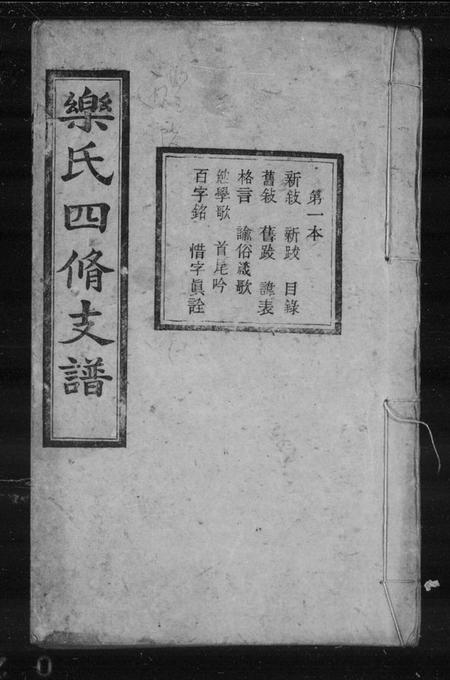 樂氏四脩支譜
第一本
新敍 新跋 目錄
舊敍 舊跋 諱表
格言 諭俗箴歌
勉學歌 首尾吟
百字銘 惜字眞詮